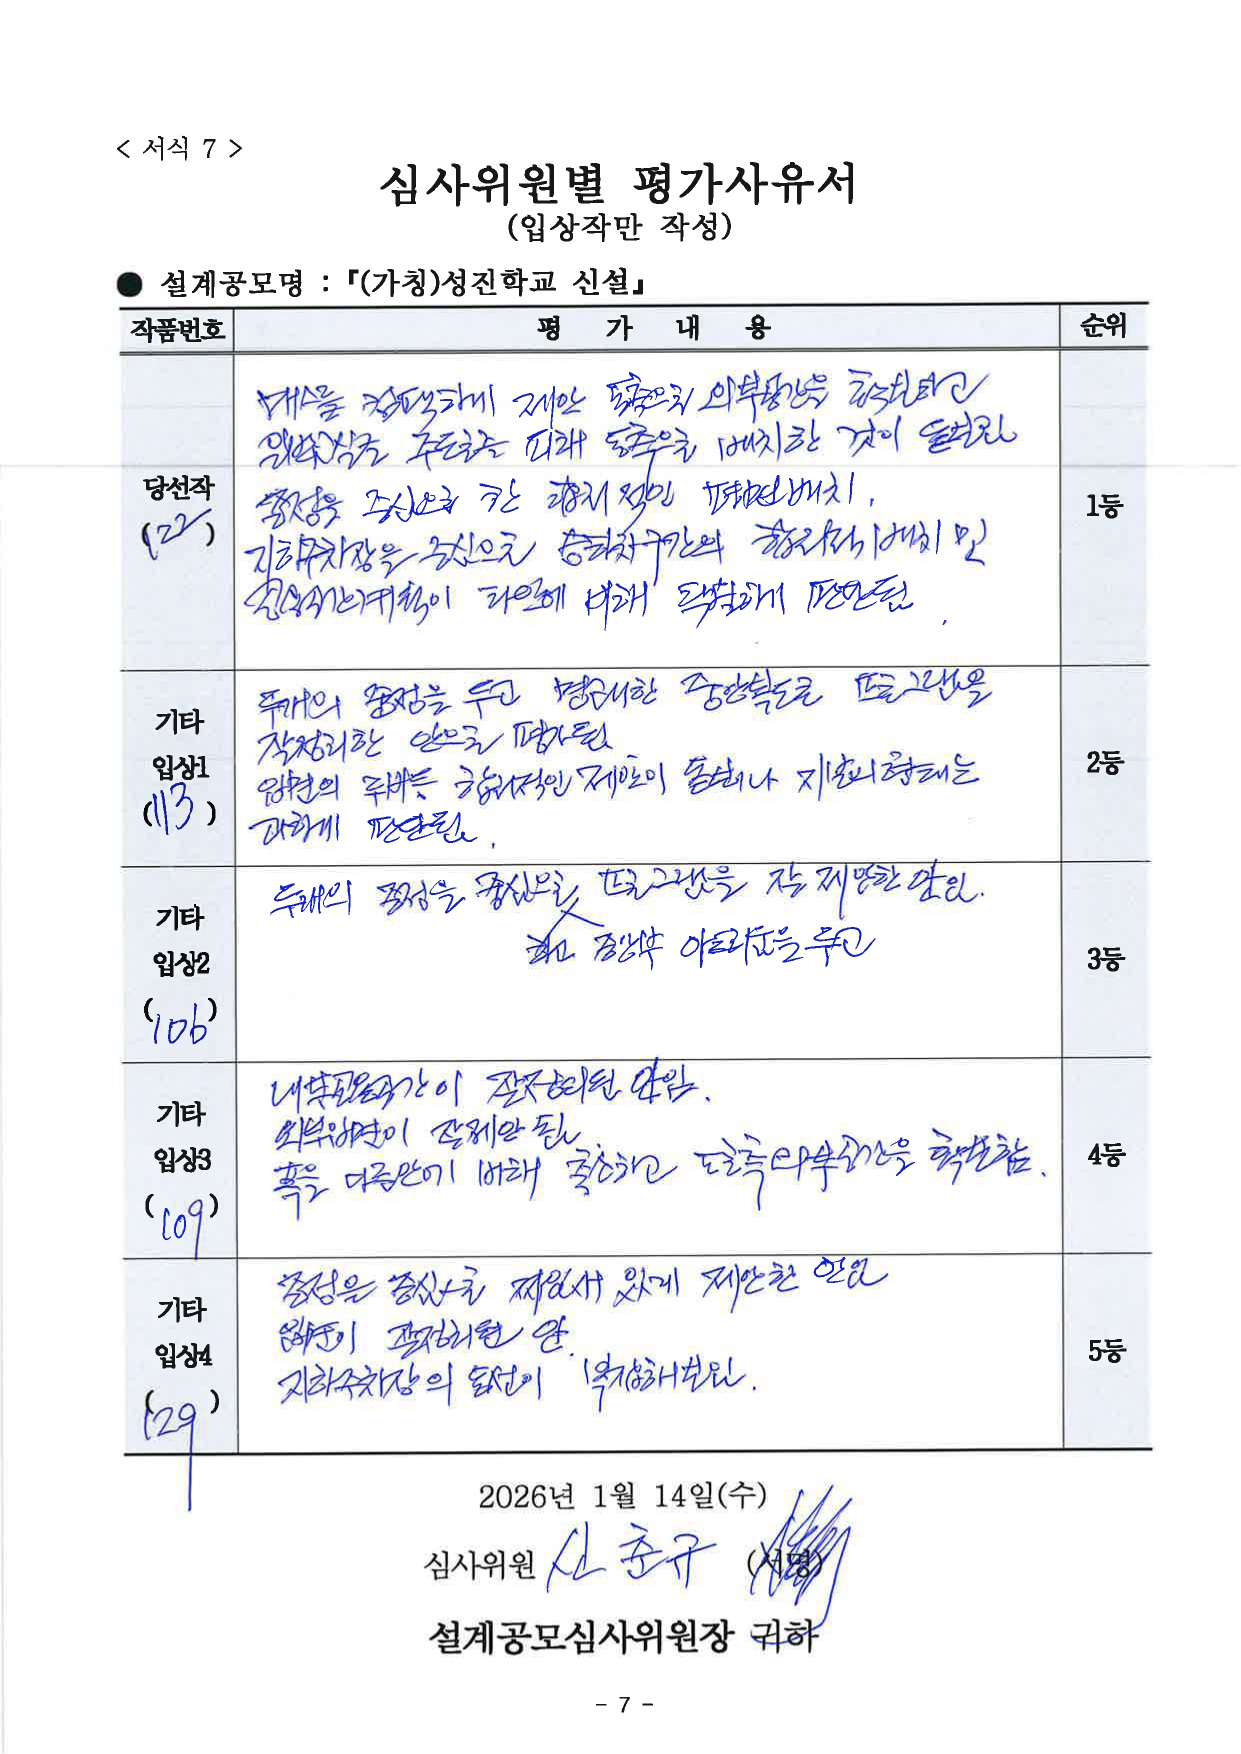 < 서식 7 >
심사위원별 평가사유서
(입상작만 작성)
● 설계공모명 : 『(가칭)성진학교 신설』
작품번호 평 가 내 용 순위
매스를 컴팩트하게 제안 외부공간을 확보하고
주도로를 피해 동측으로 배치한 것이
중정을 중심으로 한 합리적인 평면배치,
당선작
(22)
1등
지하주차장을 중심으로 승하차구간의 합리적 배치 및
타안에 비해 탁월하게 판단됨.
두개의 중정을 두고 명쾌한 중앙복도로 프로그램을
잘정리한 안으로 평가됨
기타
입상1
(113)
2등
입면의 합리적인 제안이 지붕의 형태는
과하게 판단됨.
두개의 중정을 중심으로 프로그램을 잘 제안한 안임.
하고 중앙부 아트리움을 두고
기타
입상2
(106)
3등
내부교육공간이 잘정리된 안임.
외부입면이 잘제안 됨
기타
입상3
(109)
4등
다른안에 비해 외부공간을 확보함.
중정을 중심으로 짜임새 있게 제안한 안임
입면이 잘정리된 안.
기타
입상4
(129)
5등
지하주차장의 동선이 복잡해보임.
2026년 1월 14일(수)
심사위원 신춘규 (서명)
설계공모심사위원장 귀하
- 7 -